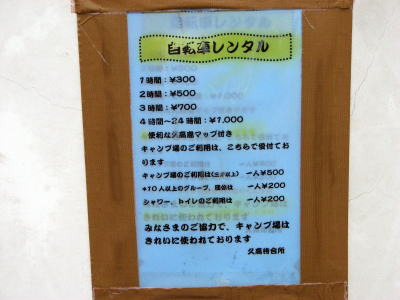 自転車レンタル
1時間：¥300
2時間：¥500
3時間：¥700
4時間～24時間：¥1,000
便利な久高島マップ付き
キャンプ場のご利用は、こちらで受付てお
ります
キャンプ場のご利用は(三才以上) 一人¥500
*10人以上のグループ、団体は 一人¥200
シャワー、トイレのご利用は 一人¥200
みなさまのご協力で、キャンプ場は
きれいに使われております
久高待合所